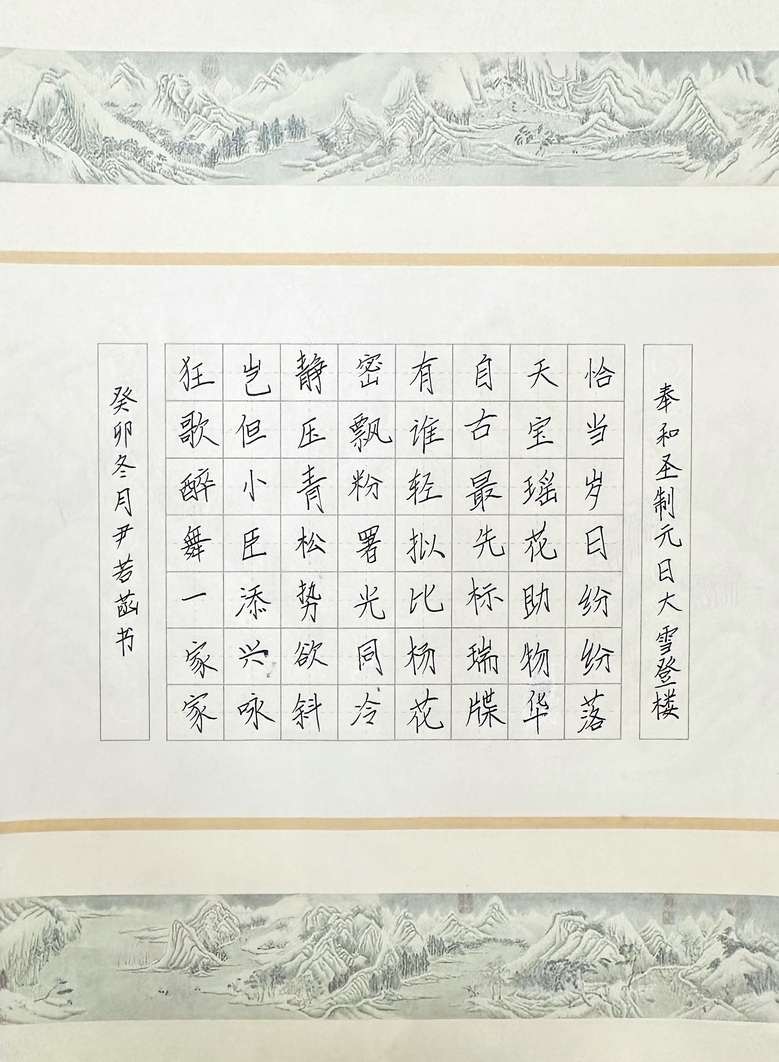 奉和圣制元日大雪登楼
恰当岁日纷纷落
天宝瑶花助物华
自古最先标瑞牒
有谁轻拟比杨花
密飘粉署光同冷
静压青松势欲斜
岂但小臣添兴咏
狂歌醉舞一家家
癸卯冬月尹若菡书